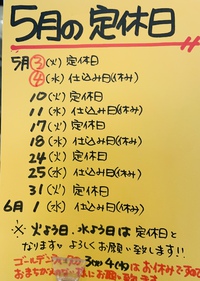 5月の定休日
5月 3 (火) 定休日
4 (水) 仕込み日(休み)
10 (火) 定休日
11 (水) 仕込み日(休み)
17 (火) 定休日
18 (水) 仕込み日(休み)
24 (火) 定休日
25 (水) 仕込み日(休み)
31 (火) 定休日
6月 1 (水) 仕込み日(休み)
※ 火よう日、水よう日は定休日と
なります。よろしくお願い致します!!
ゴールデン 3(火) 4(水)はお休みです
おまちがえのない様にお願い致します